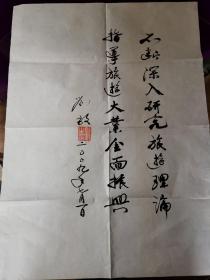 不断深入研究旅游理论
指导旅游大业全面振兴
二〇〇九年七月一日